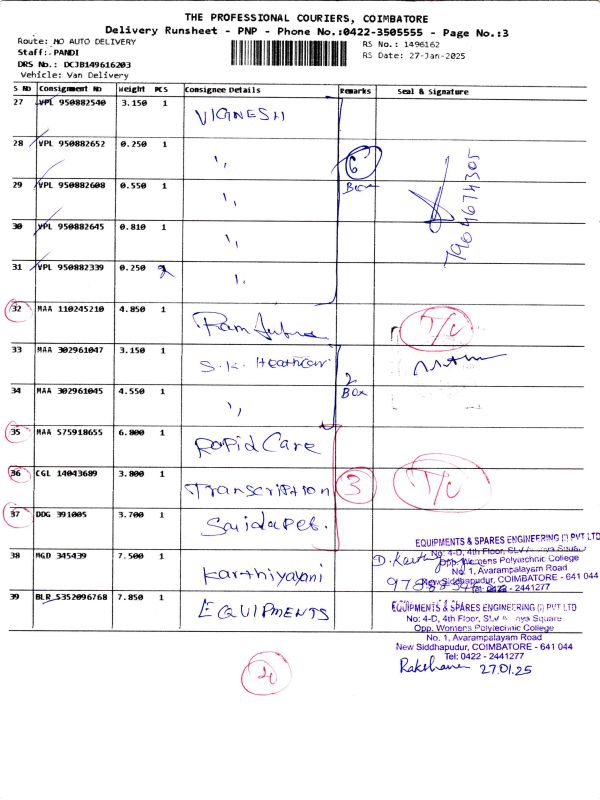 THE PROFESSIONAL COURIERS, COIMBATORE
Delivery Runsheet - PNP - Phone No.:0422-3505555 - Page No.:3
Route: MO AUTO DELIVERY
RS No.: 1496162
Staff: PANDI
RS Date: 27-Jan-2025
DRS No.: DCJB149616203
Vehicle: Van Delivery
S No Consignment No Weight PCS Consignee Details Remarks Seal & Signature
27 VPL 950882540 3.150 1 VIGNESH
28 VPL 950882652 0.250 1 " 6
29 VPL 950882608 0.550 1 " Box
7904674305
30 VPL 950882645 0.810 1 "
31 VPL 950882339 0.250 1 "
32 MAA 110245210 4.850 1 Ram T/C
33 MAA 302961047 3.150 1 S.K. Heathcar 2
34 MAA 302961045 4.550 1 " Box
35 MAA 575918655 6.800 1 Rapid Care
36 CGL 14043689 3.800 1 Transcription 3 T/C
37 DDG 391005 3.700 1 Saidapet.
38 MGD 345439 7.500 1 Karthiyayani
EQUIPMENTS & SPARES ENGINEERING (I) PVT LTD
No: 4-D, 4th Floor,
Opp. Womens Polytechnic College
No. 1, Avarampalayam Road
New Siddhapudur, COIMBATORE - 641 044
39 BLR S352096768 7.850 1 EQUIPMENTS
EQUIPMENTS & SPARES ENGINEERING (I) PVT LTD
No: 4-D, 4th Floor, Square
Opp. Womens Polytechnic College
No. 1, Avarampalayam Road
New Siddhapudur, COIMBATORE - 641 044
Tel: 0422 - 2441277
27.01.25